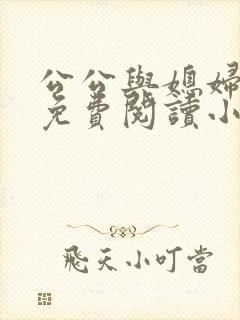 公公與媳婦
免費閱讀小
飛天小叮當